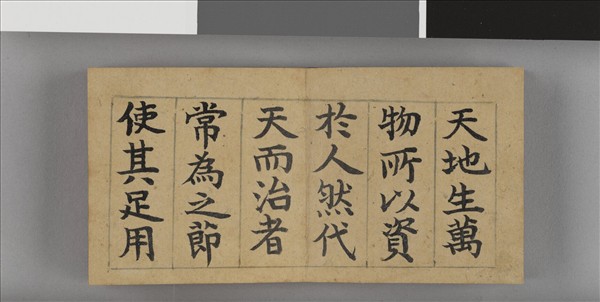 天地生萬
物所以資
於人然代
天而治者
常為之節
使其足用